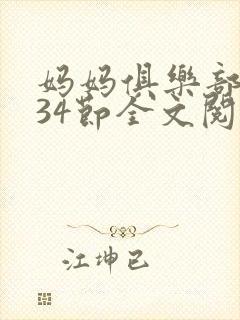 妈妈俱樂部
34節全文閱
江坤已